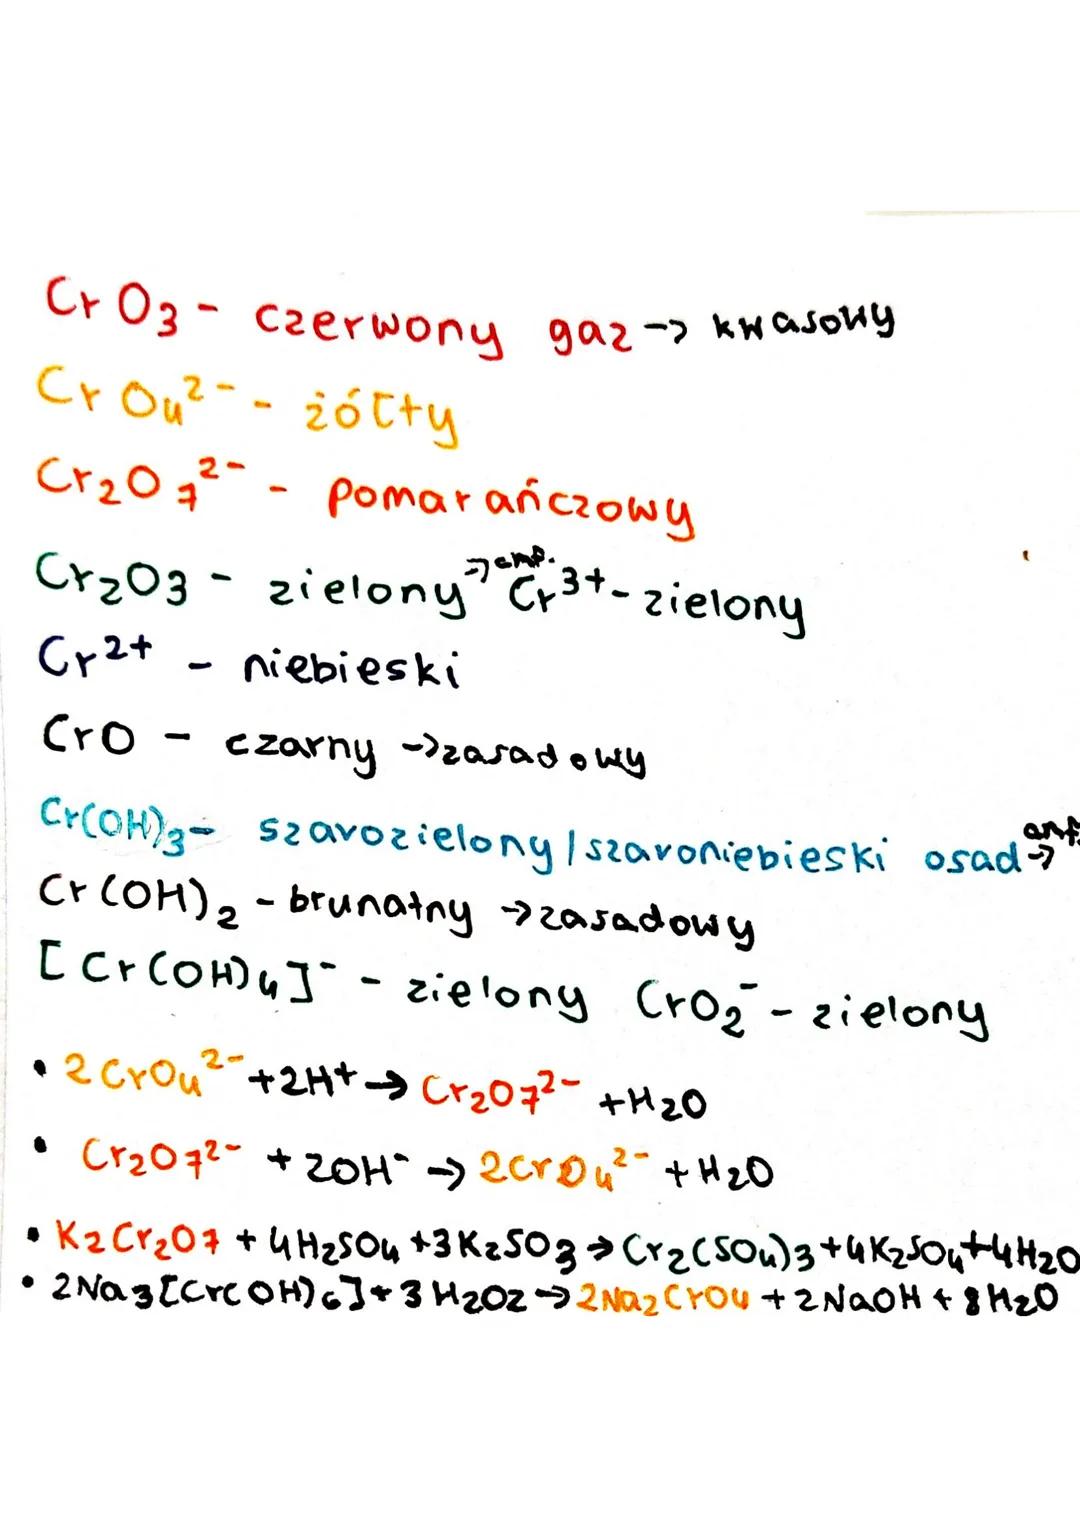 CrO3 - czerwony gaz -> kwasowy
CrO4²⁻ - żółty
Cr2O7²⁻ - pomarańczowy
Cr2O3 - zielony -> amf. Cr³⁺ - zielony
Cr²⁺ - niebieski
CrO - czarny -> zasadowy
Cr(OH)3 - szarozielony / szaroniebieski osad -> amf.
Cr(OH)2 - brunatny -> zasadowy
[Cr(OH)4]⁻ - zielony CrO2⁻ - zielony
• 2CrO4²⁻ + 2H⁺ → Cr2O7²⁻ + H2O
• Cr2O7²⁻ + 2OH⁻ → 2CrO4²⁻ + H2O
• K2Cr2O7 + 4H2SO4 + 3K2SO3 → Cr2(SO4)3 + 4K2SO4 + 4H2O
• 2Na3[Cr(OH)6] + 3H2O2 → 2Na2CrO4 + 2NaOH + 8H2O